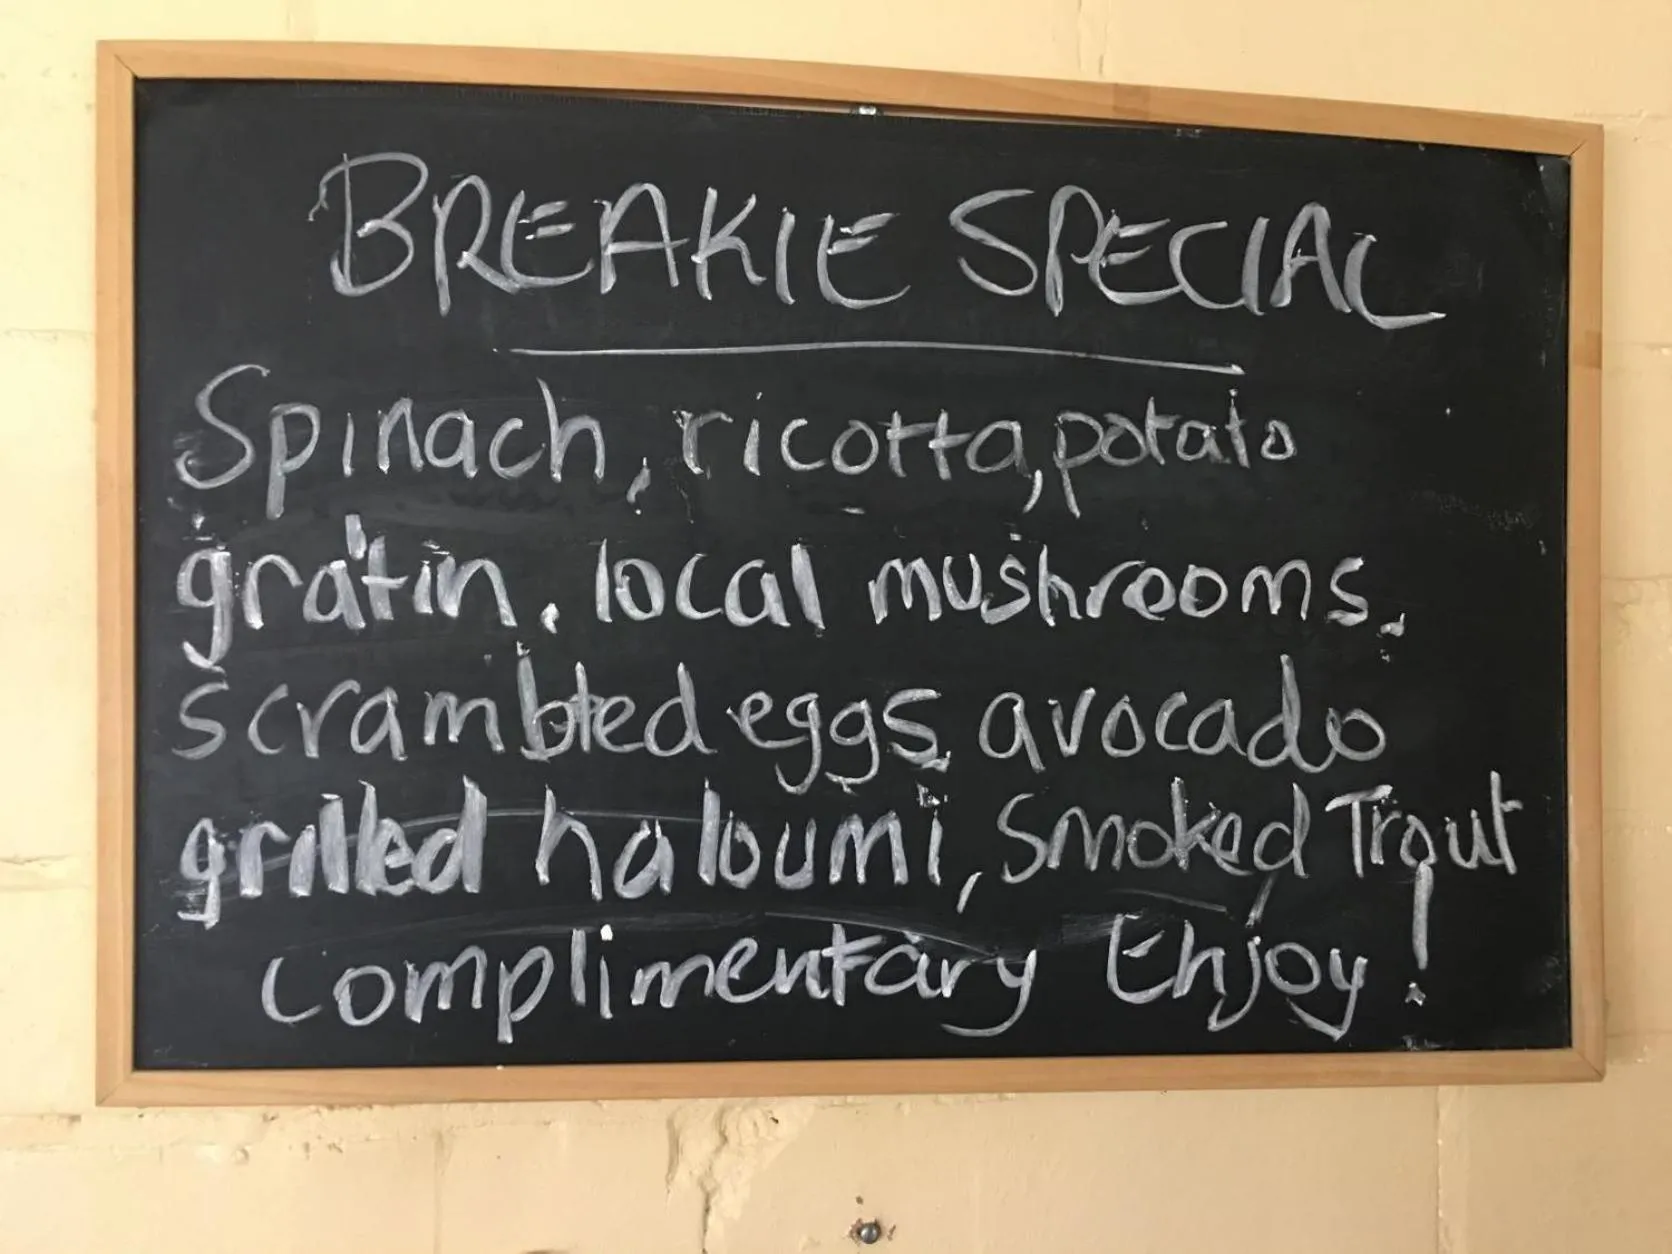 BREAKIE SPECIAL
Spinach, ricotta, potato
gratin, local mushrooms,
scrambled eggs, avocado
grilled haloumi, smoked Trout
complimentary Enjoy!